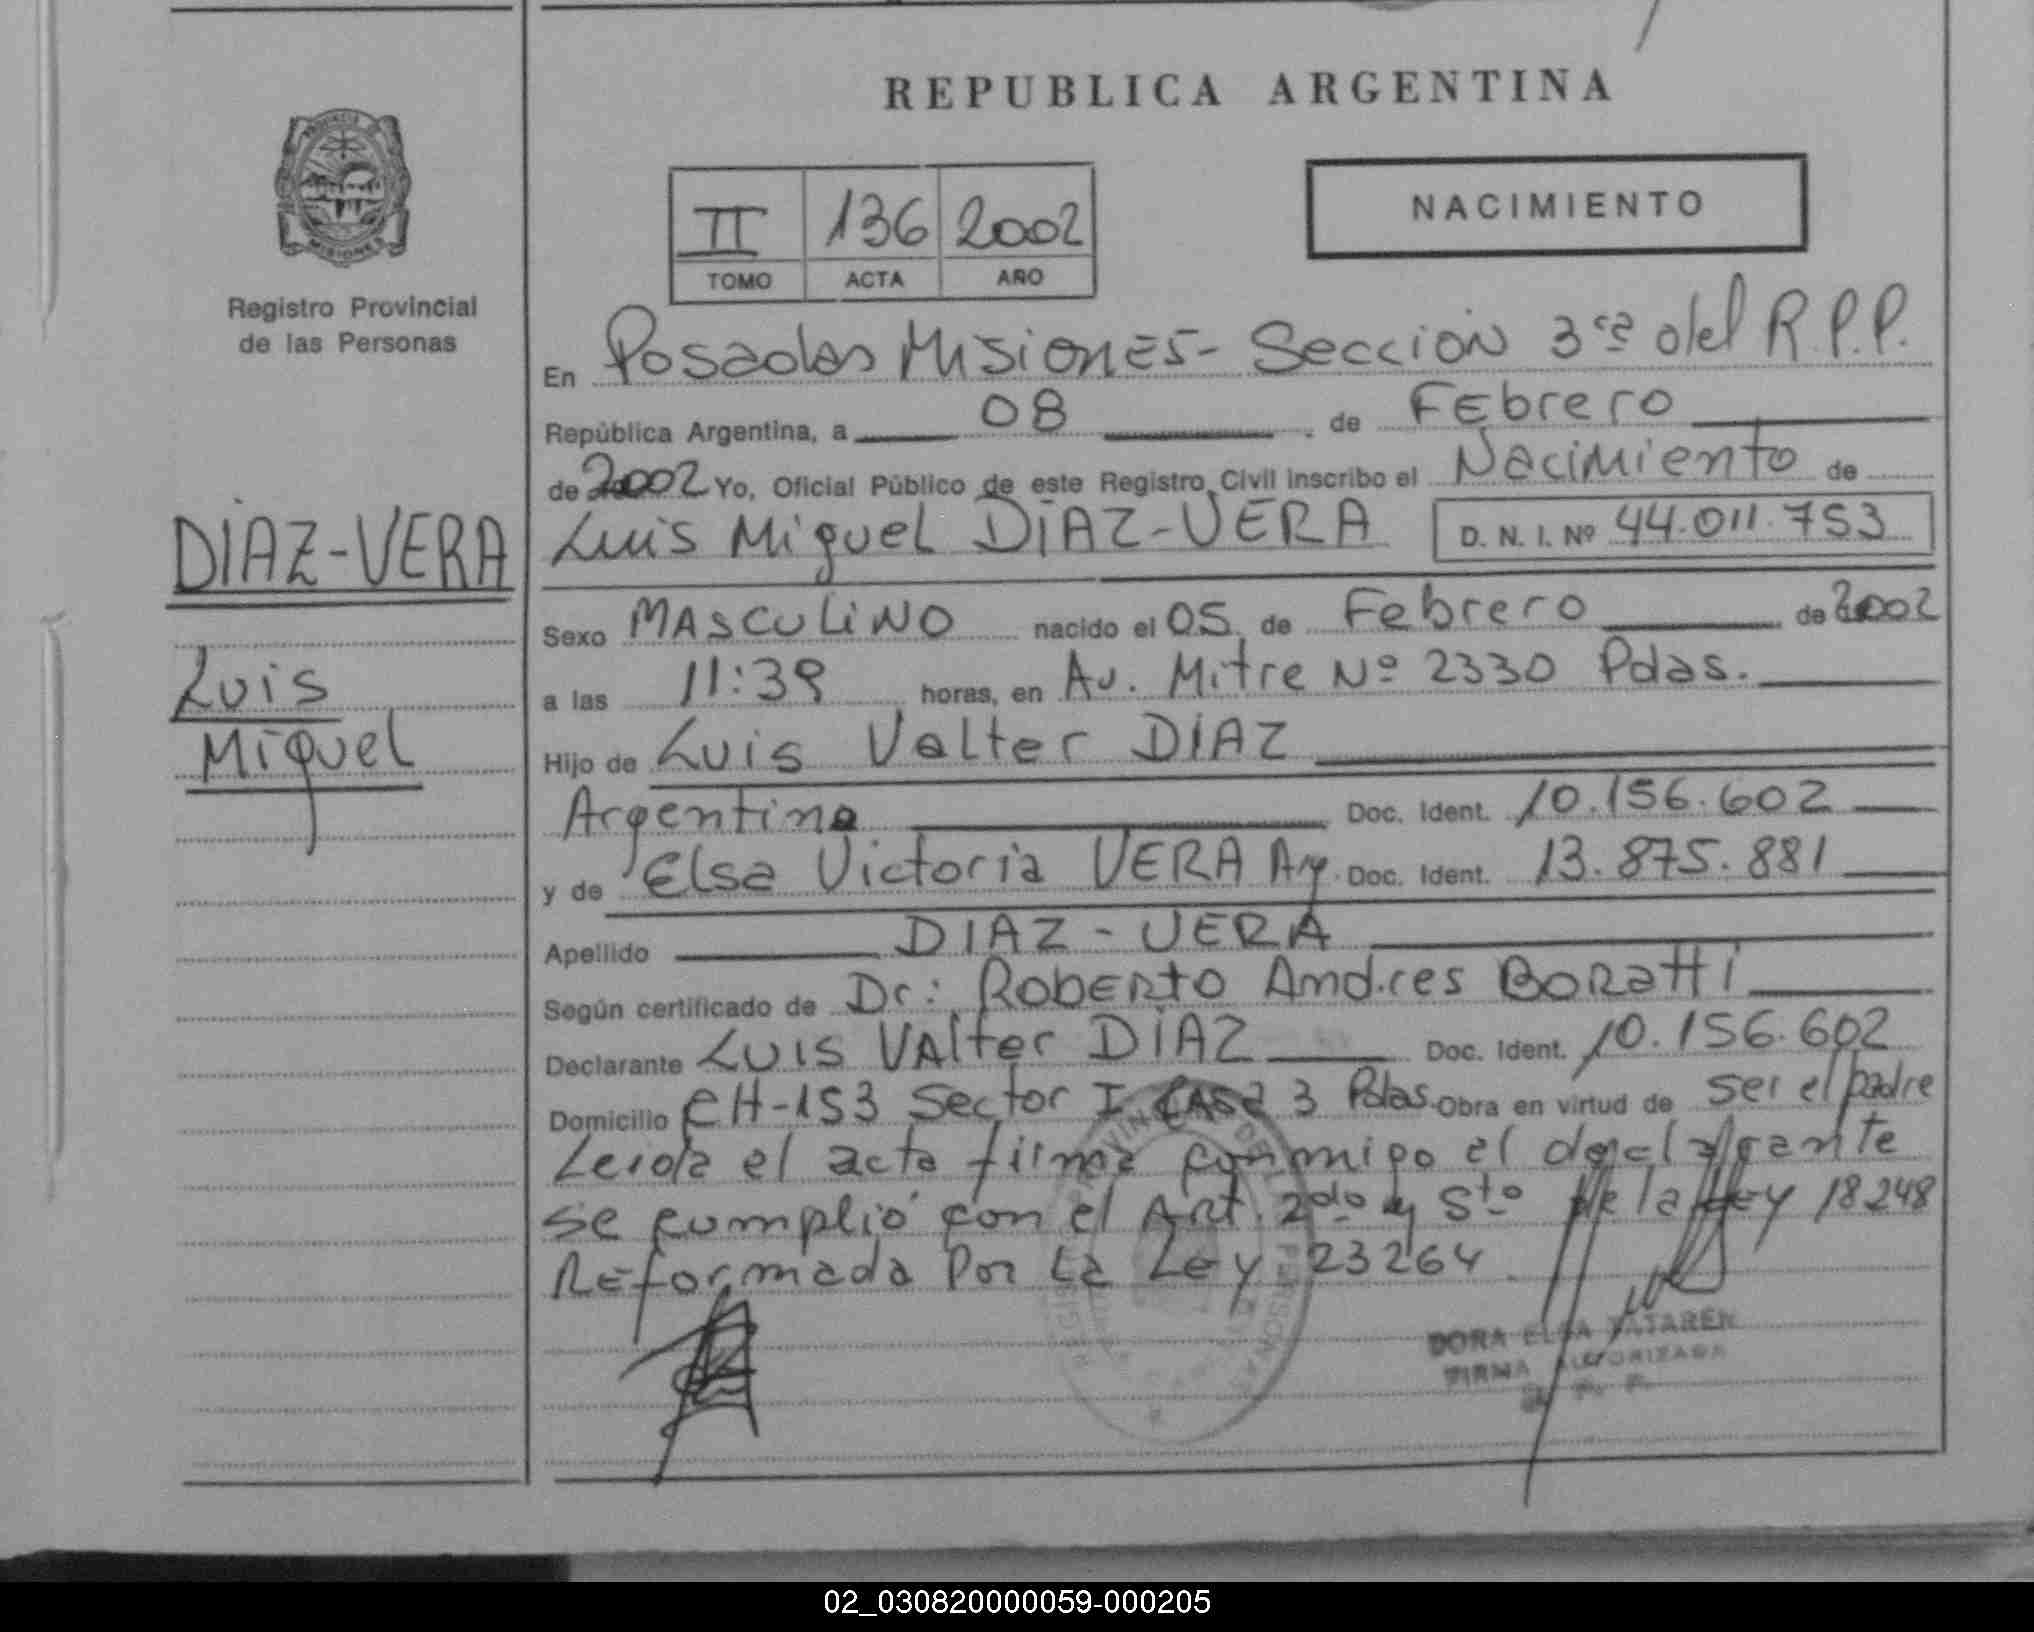 REPUBLICA ARGENTINA
PROVINCIA DE
MISIONES
Registro Provincial
de las Personas
DIAZ-VERA
Luis
Miguel
NACIMIENTO
II 136 2002
TOMO ACTA AÑO
En Posadas Misiones - Sección 3ra del R.P.P.
República Argentina, a 08 de Febrero
de 2002 Yo, Oficial Público de este Registro Civil inscribo el Nacimiento de
Luis Miguel DIAZ-VERA D. N. I. Nº 44.011.753
Sexo MASCULINO nacido el 05 de Febrero de 2002
a las 11:39 horas, en Av. Mitre Nº 2330 Pdas.
Hijo de Luis Valter DIAZ
Argentino Doc. Ident. 10.156.602
y de Elsa Victoria VERA Arg. Doc. Ident. 13.875.881
Apellido DIAZ - VERA
Según certificado de Dr: Roberto Andres Boratti
Declarante Luis Valter DIAZ Doc. Ident. 10.156.602
Domicilio CH-153 Sector I Casa 3 Pdas. Obra en virtud de ser el padre
Leida el acta firma conmigo el declarante
se cumplió con el Art. 2do y 5to de la Ley 18248
Reformada Por la Ley 23264
DORA ELSA TATAREN
FIRMA AUTORIZADA
R. P. P.
02_030820000059-000205